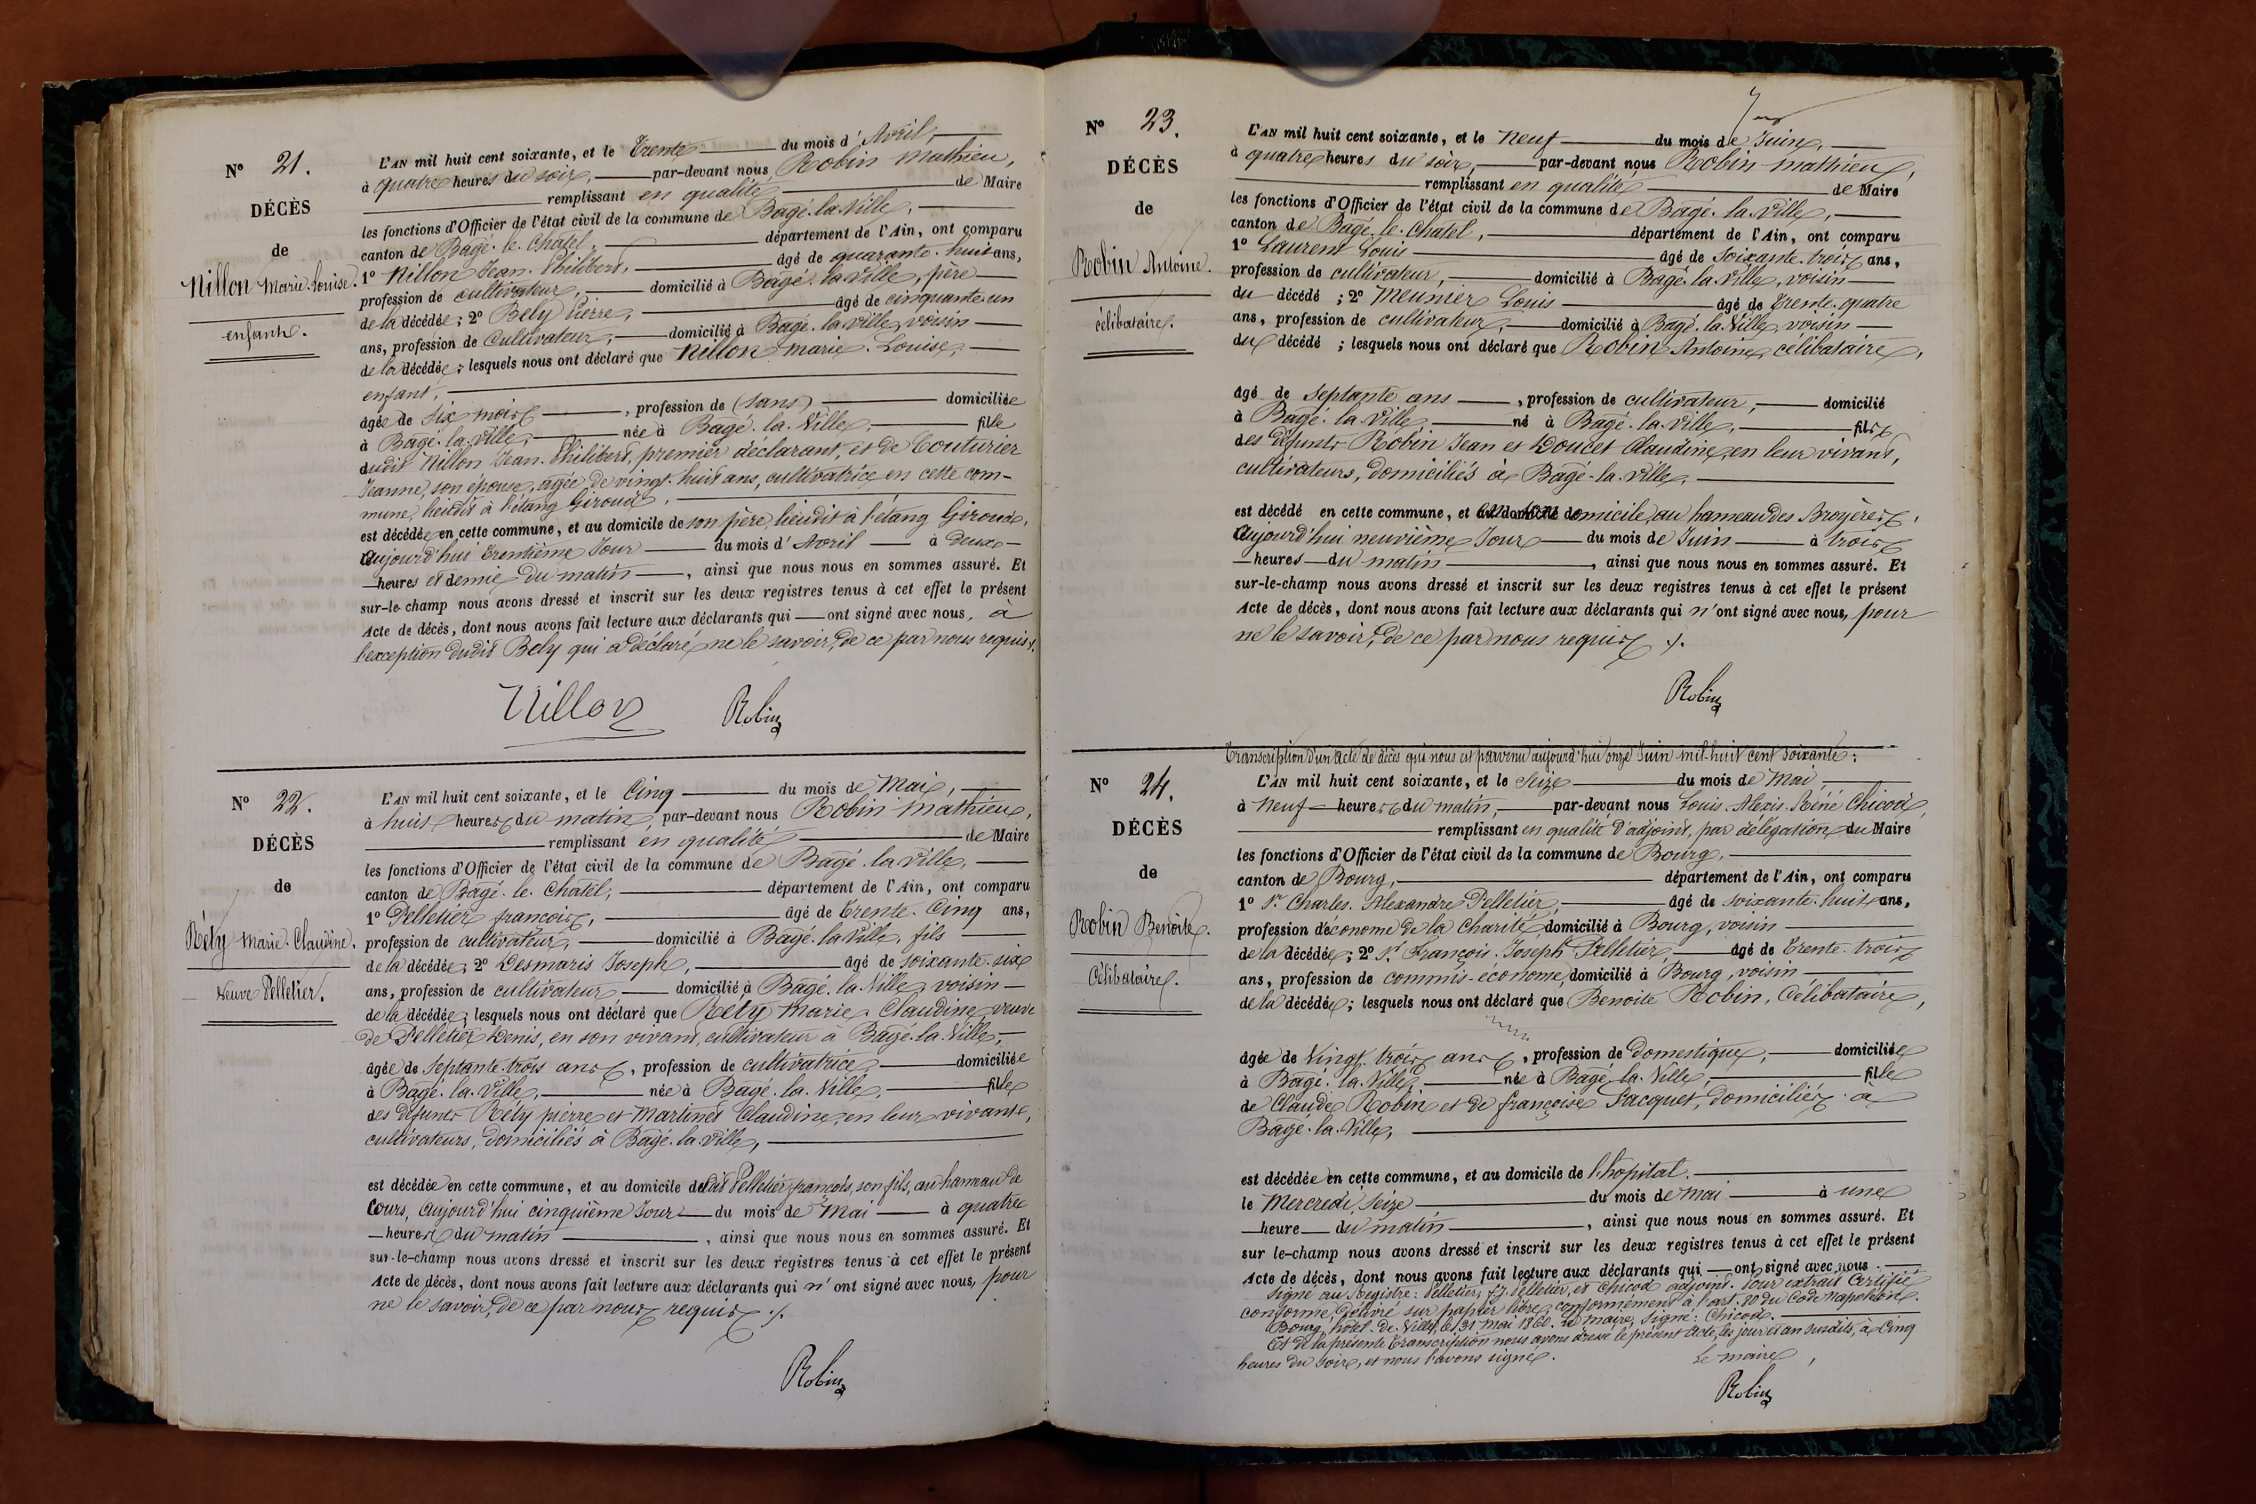 N° 21.
DÉCÈS
de
Nillon Marie-Louise.
enfant.
L'AN mil huit cent soixante, et le Trente du mois d'Avril,
à quatre heures du soir, par-devant nous Robin Mathieu,
remplissant en qualité de Maire
les fonctions d'Officier de l'état civil de la commune de Bagé-la-Ville,
canton de Bagé-le-Chatel, département de l'Ain, ont comparu
1° Nillon Jean-Philibert, âgé de quarante-huit ans,
profession de cultivateur, domicilié à Bagé-la-Ville, père
de la décédée; 2° Bely Pierre, âgé de cinquante-un
ans, profession de Cultivateur, domicilié à Bagé-la-Ville, voisin
de la décédée; lesquels nous ont déclaré que Nillon Marie-Louise,
enfant,
âgée de six mois, profession de (sans) domiciliée
à Bagé-la-Ville, née à Bagé-la-Ville, fille
dudit Nillon Jean-Philibert, premier déclarant, et de Couturier
Jeanne, son épouse, agée de vingt-huit ans, cultivatrice en cette com-
mune, lieudit à l'étang Giroud,
est décédée en cette commune, et au domicile de son père, lieudit à l'étang Giroud,
Aujourd'hui trentième Jour du mois d'Avril à deux
heures et demie du matin, ainsi que nous nous en sommes assuré. Et
sur-le-champ nous avons dressé et inscrit sur les deux registres tenus à cet effet le présent
Acte de décès, dont nous avons fait lecture aux déclarants qui ont signé avec nous, à
l'exception dudit Bely qui a déclaré ne le savoir, de ce par nous requis.
Nillon Robin
N° 22.
DÉCÈS
de
Réty Marie-Claudine.
Veuve Pelletier.
L'AN mil huit cent soixante, et le Cinq du mois de Mai,
à huit heures du matin, par-devant nous Robin Mathieu,
remplissant en qualité de Maire
les fonctions d'Officier de l'état civil de la commune de Bagé-la-Ville,
canton de Bagé-le-Chatel, département de l'Ain, ont comparu
1° Pelletier françois, âgé de Trente-Cinq ans,
profession de cultivateur, domicilié à Bagé-la-Ville, fils
de la décédée; 2° Desmaris Joseph, âgé de soixante-six
ans, profession de cultivateur domicilié à Bagé-la-Ville, voisin
de la décédée; lesquels nous ont déclaré que Réty Marie-Claudine, veuve
de Pelletier Denis, en son vivant, cultivateur à Bagé-la-Ville,
âgée de septante-trois ans, profession de cultivatrice domiciliée
à Bagé-la-Ville, née à Bagé-la-Ville, fille
des défunts Réty pierre et Martinet Claudine, en leur vivant,
cultivateurs, domiciliés à Bagé-la-Ville,
est décédée en cette commune, et au domicile dudit Pelletier françois, son fils, au hameau de
Cours, aujourd'hui cinquième Jour du mois de Mai à quatre
heures du matin, ainsi que nous nous en sommes assuré. Et
sur-le-champ nous avons dressé et inscrit sur les deux registres tenus à cet effet le présent
Acte de décès, dont nous avons fait lecture aux déclarants qui n'ont signé avec nous, pour
ne le savoir, de ce par nous requis.
Robin
N° 23.
DÉCÈS
de
Robin Antoine.
célibataire.
L'AN mil huit cent soixante, et le Neuf du mois de Juin,
à quatre heures du soir, par-devant nous Robin Mathieu,
remplissant en qualité de Maire
les fonctions d'Officier de l'état civil de la commune de Bagé-la-Ville,
canton de Bagé-le-Chatel, département de l'Ain, ont comparu
1° Laurent Louis âgé de soixante-trois ans,
profession de cultivateur, domicilié à Bagé-la-Ville, voisin
du décédé; 2° Meunier Louis âgé de Trente-quatre
ans, profession de cultivateur, domicilié à Bagé-la-Ville, voisin
du décédé; lesquels nous ont déclaré que Robin Antoine, célibataire,
âgé de septante ans, profession de cultivateur, domicilié
à Bagé-la-Ville, né à Bagé-la-Ville, fils
des défunts Robin Jean et Doucet Claudine, en leur vivant,
cultivateurs, domiciliés à Bagé-la-Ville,
est décédé en cette commune, et domicile, au hameau des Bruyères,
Aujourd'hui neuvième Jour du mois de Juin à trois
heures du matin, ainsi que nous nous en sommes assuré. Et
sur-le-champ nous avons dressé et inscrit sur les deux registres tenus à cet effet le présent
Acte de décès, dont nous avons fait lecture aux déclarants qui n'ont signé avec nous, pour
ne le savoir, de ce par nous requis.
Robin
Transcription d'un acte de décès qui nous est parvenu aujourd'hui onze Juin mil huit cent soixante:
N° 24.
DÉCÈS
de
Robin Benoite.
Célibataire.
L'AN mil huit cent soixante, et le Seize du mois de Mai
à neuf heures du matin, par-devant nous Louis-Alexis-Réné Chicod,
remplissant en qualité d'adjoint, par délégation du Maire
les fonctions d'Officier de l'état civil de la commune de Bourg,
canton de Bourg, département de l'Ain, ont comparu
1° Sr. Charles-Alexandre Pelletier, âgé de soixante-huit ans,
profession d'économe de la Charité, domicilié à Bourg, voisin
de la décédée; 2° Sr. François-Joseph Pelletier, âgé de Trente-trois
ans, profession de commis-économe, domicilié à Bourg, voisin
de la décédée; lesquels nous ont déclaré que Benoite Robin, Célibataire,
âgée de Vingt-trois ans, profession de domestique, domiciliée
à Bagé-la-Ville, née à Bagé-la-Ville, fille
de Claude Robin et de françoise Jacquet, domiciliés à
Bagé-la-Ville,
est décédée en cette commune, et au domicile de l'hopital.
le Mercredi, Seize du mois de Mai à une
heure du matin, ainsi que nous nous en sommes assuré. Et
sur le-champ nous avons dressé et inscrit sur les deux registres tenus à cet effet le présent
Acte de décès, dont nous avons fait lecture aux déclarants qui ont signé avec nous.
Signé au Registre: Pelletier, f.J. Pelletier, et Chicod adjoint. Pour extrait Certifié
conforme, Délivré sur papier libre, conformément à l'art. 80 du Code Napoléon.
Bourg, hôtel-de-Ville, le 31 Mai 1860. Le maire, signé: Chicod.
Et de la présente Transcription nous avons dressé le présent Acte, les jour et an susdits, à Cinq
heures du soir, et nous l'avons signé.
Le maire,
Robin